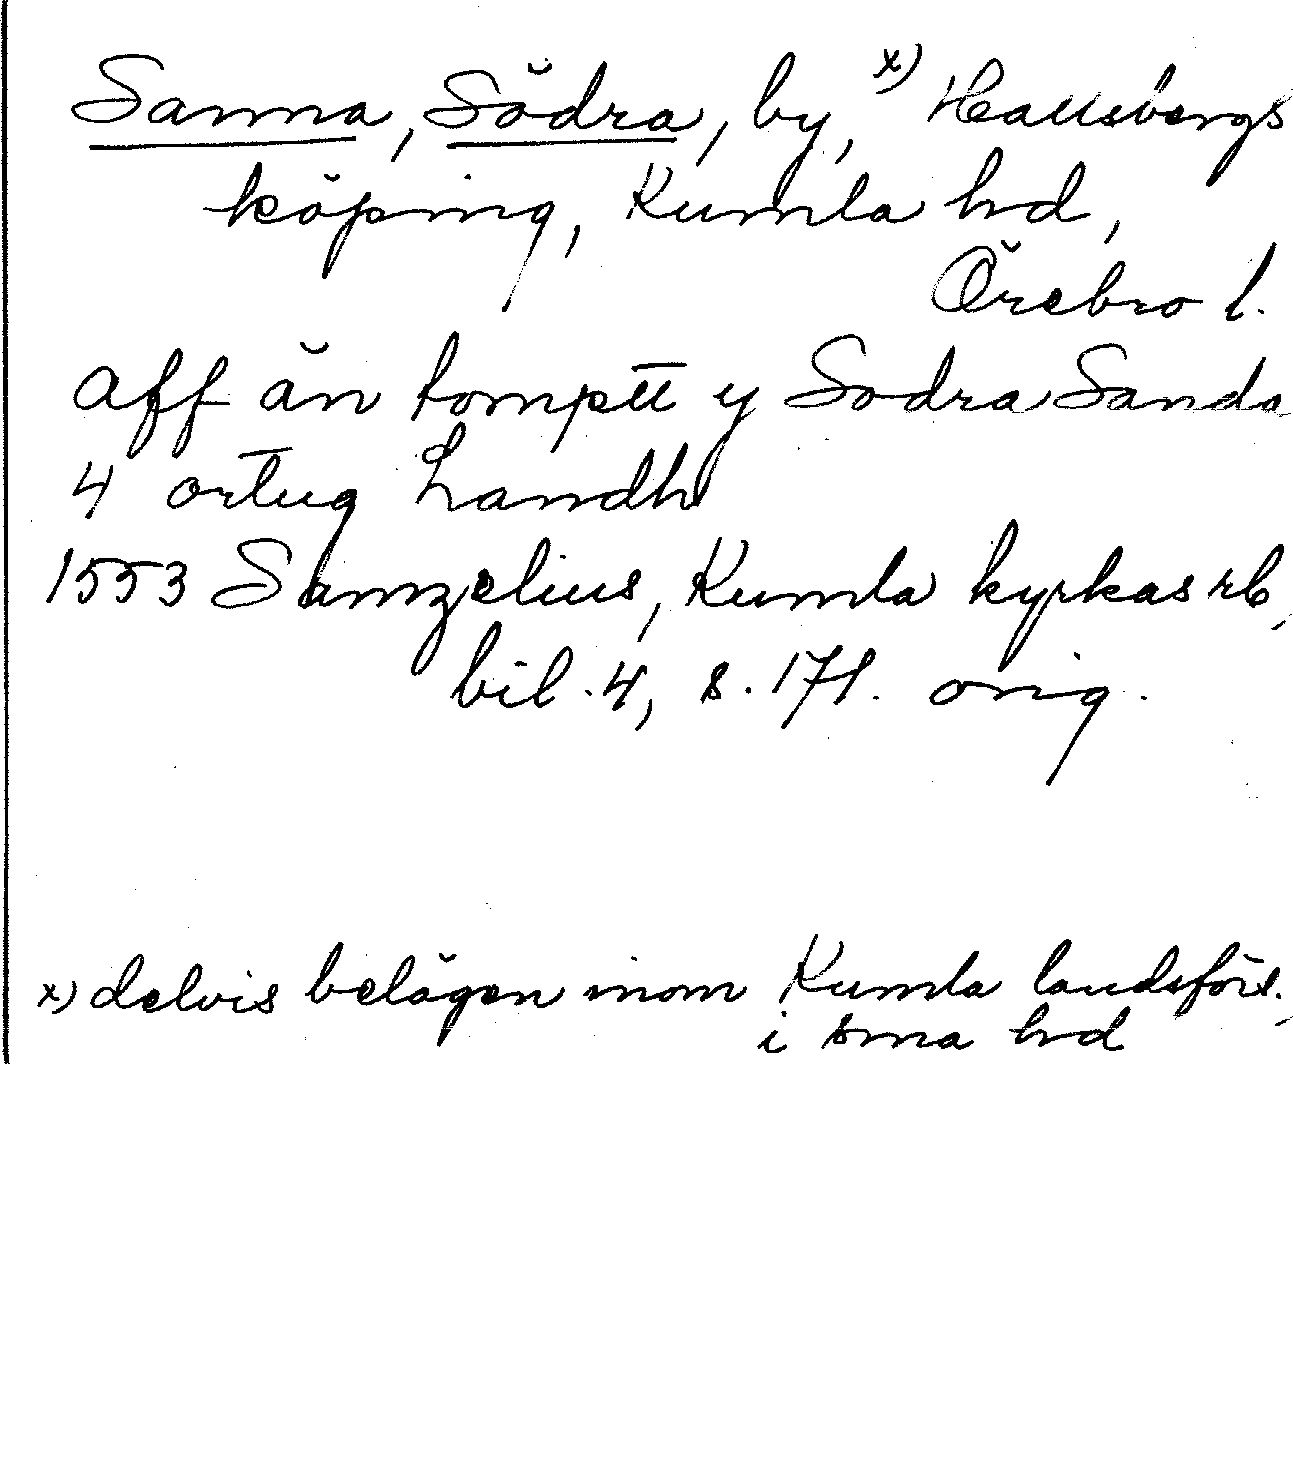 Sanna, Södra, by, x) Hallsbergs
köping, Kumla hd,
Örebro l.
Aff än tomptt y Sodra Sanda
4 ortug Landh
1553 Samzelius, Kumla kyrkas rb,
bil. 4, s. 171. orig.
x) delvis belägen inom Kumla landsförs.,
i sma hd